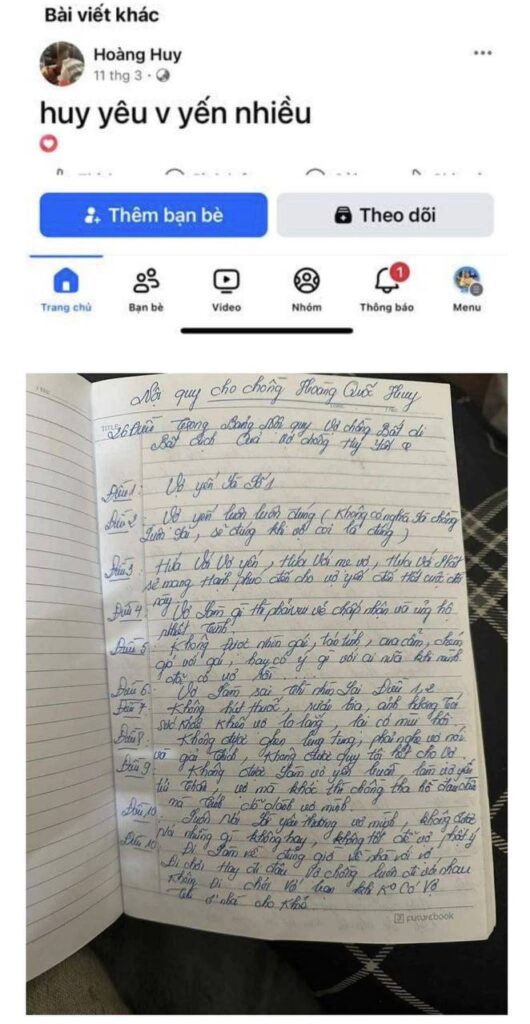 Bài viết khác
Hoàng Huy
11 thg 3
huy yêu v yến nhiều
Thêm bạn bè
Theo dõi
1
Trang chủ
Bạn bè
Video
Nhóm
Thông báo
Menu
Nội quy cho chồng Hoàng Quốc Huy
TITLE 26 Điều Trong Bảng Nội quy Vợ chồng Bất di
Bất dịch Của vợ chồng Huy Yến
Điều 1: Vợ yến là Số 1
Điều 2: Vợ yến luôn luôn đúng (Không có nghĩa là chồng
luôn sai, sẽ đúng khi vợ coi là đúng)
Điều 3: Hứa Với Vợ yến, Hứa Với mẹ vợ, Hứa Với Phật
sẽ mang Hạnh phúc đến cho vợ yến đến Hết cuộc đời
này.
Điều 4: Vợ Làm gì thì phải vui vẻ chấp nhận và ủng hộ
Nhiệt Tình.
Điều 5: Không Được nhìn gái, tán tỉnh, cưa cẩm,
với gái, hay có ý gì với ai nữa khi mình
đã có vợ rồi.
Điều 6: Vợ Làm sai thì nhìn lại Điều 1, 2
Điều 7: Không hút thuốc, rượu bia, ảnh hưởng tới
sức khỏe khiến vợ lo lắng, lại có mùi hôi.
Điều 8: Không được ghen lung tung, phải nghe vợ nói
và giải thích, Không được quy tội hết cho Vợ.
Điều 9: Không được Làm vợ yến buồn, làm vợ yến
tủi thân, vợ mà khóc thì chồng
mà Tính dỗ dành vợ mình.
Điều 10: Luôn nói lời yêu thương vợ mình, không được
nói những gì không hay, không tốt để vợ phật ý
Điều 10: Đi Làm về đúng giờ về nhà với vợ
Đi chơi Hay đi đâu Vợ chồng luôn đi với nhau
Không Đi chơi Với bạn khi Ko Có Vợ
ở nhà cho Khỏe.
futurebook